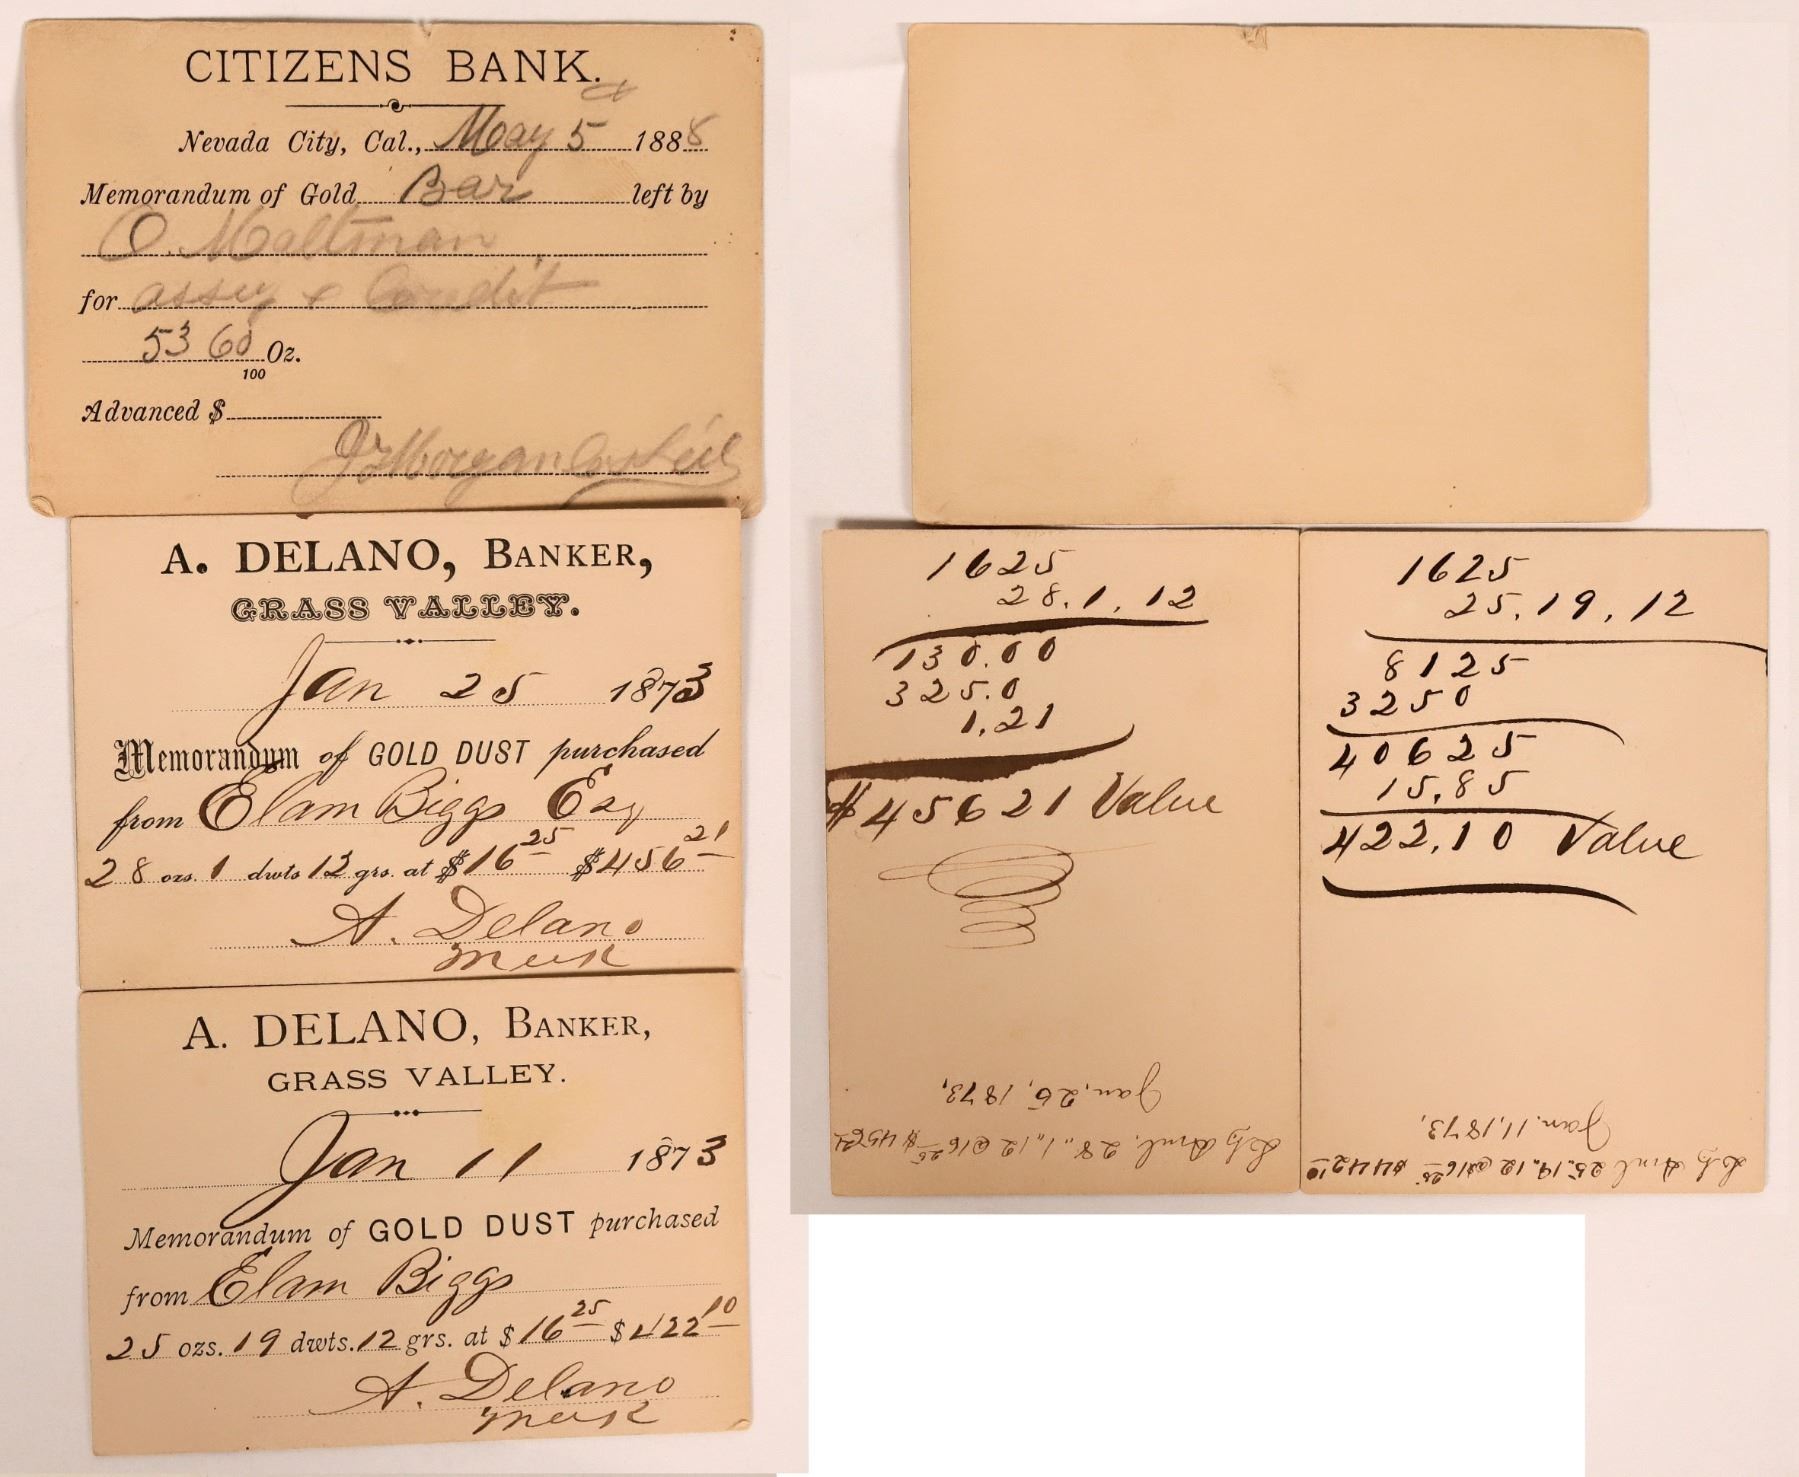 CITIZENS BANK.
Nevada City, Cal., May 5 1888
Memorandum of Gold Bar left by
O. Maltman
for assey &
53 60 Oz.
100
Advanced $
Morgan
A. DELANO, BANKER,
GRASS VALLEY.
Jan 25 1873
Memorandum of GOLD DUST purchased
from Elam Biggs Esq
28 ozs. 1 dwts 12 grs. at $16 25 $456 21
A. Delano
A. DELANO, BANKER,
GRASS VALLEY.
Jan 11 1873
Memorandum of GOLD DUST purchased
from Elam Biggs
25 ozs. 19 dwts. 12 grs. at $16 25 $422 10
A. Delano
1625
28.1.12
130.00
325.0
1.21
$45621 Value
Jan. 25, 1873,
28,,1,,12 @16 25 $456 21
1625
25.19.12
8125
3250
40625
15.85
422.10 Value
Jan. 11, 1873,
25,,19,,12 @16 25 $442 10